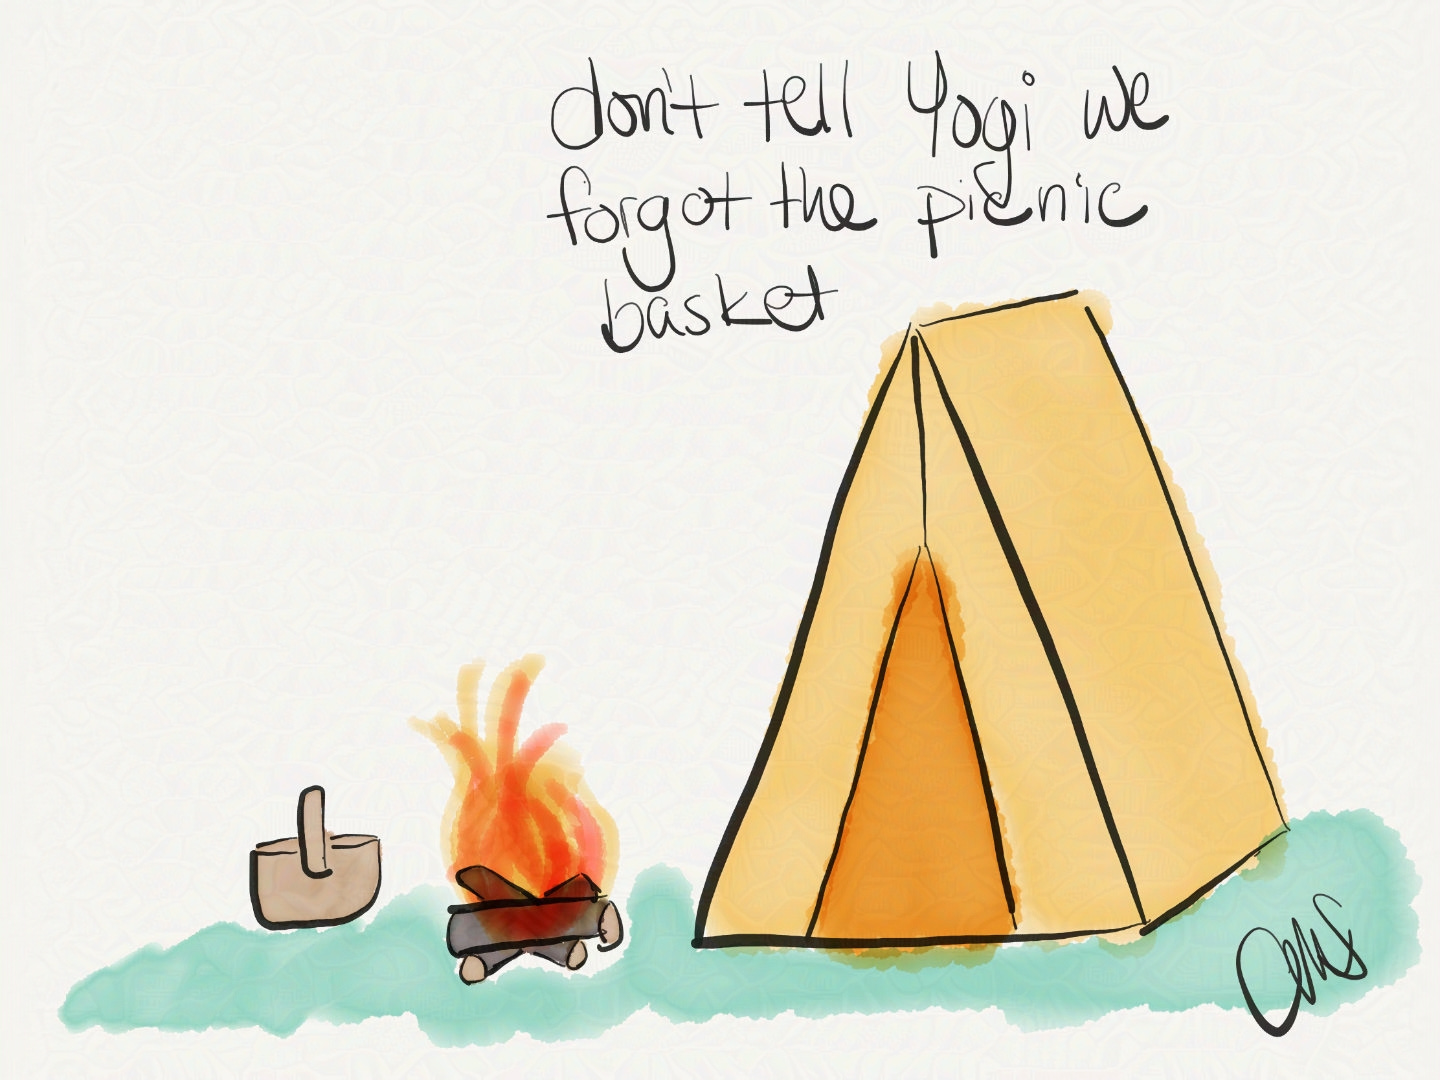 don't tell Yogi we
forgot the picnic
basket